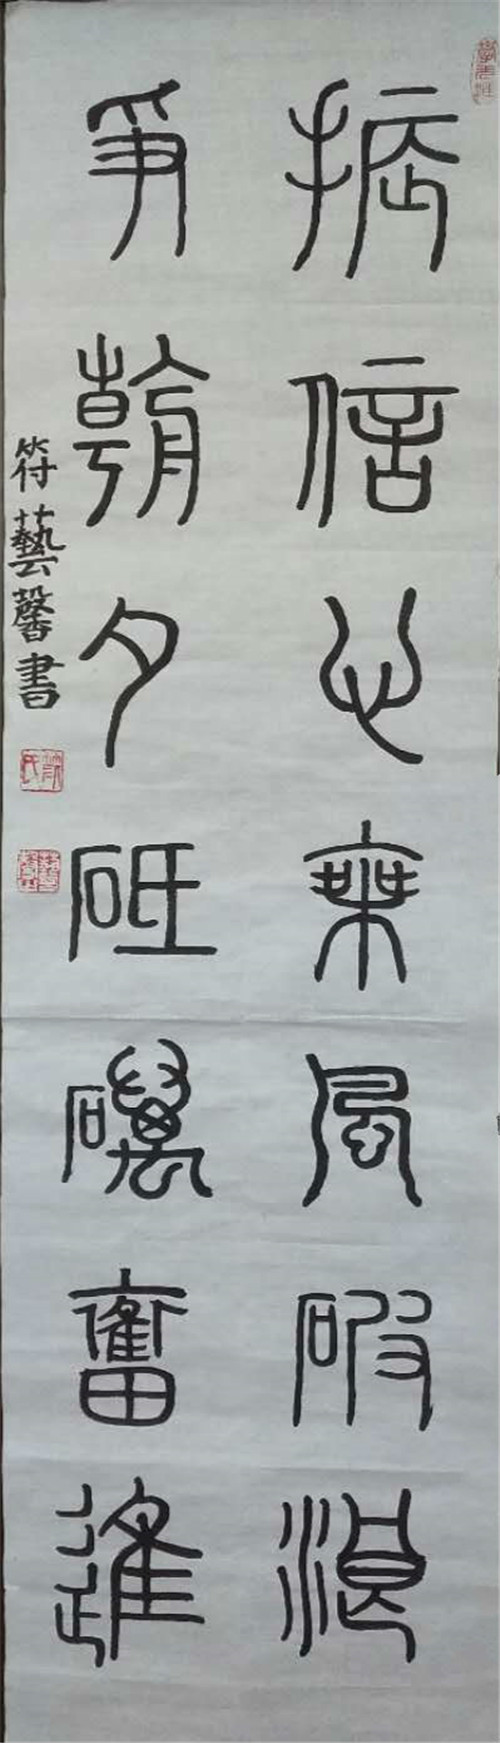 振信心乘風破浪
爭朝夕砥礪奮進
符藝馨書